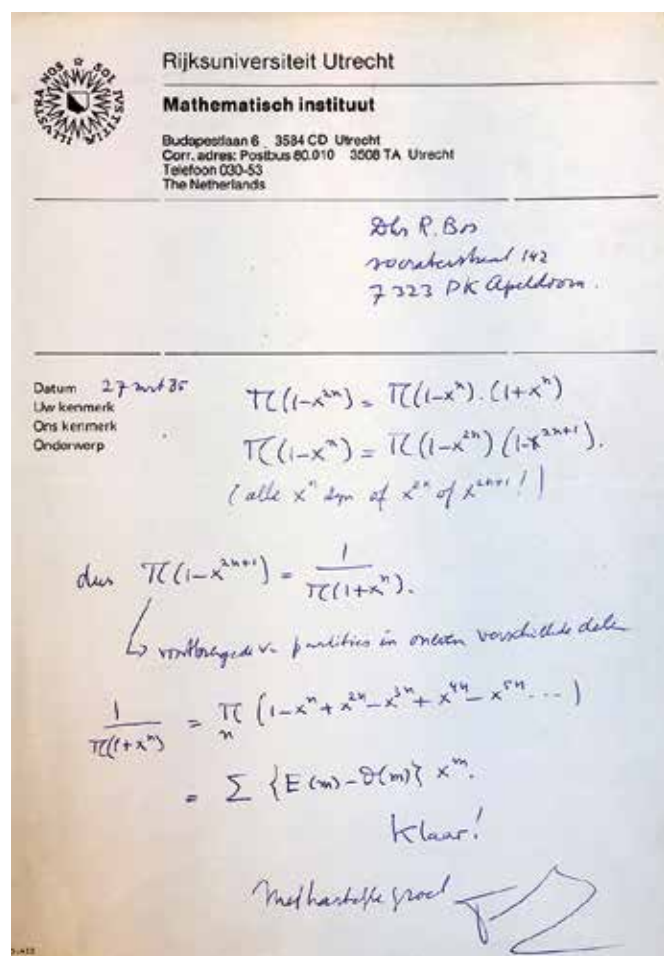 ILLUSTRA NOS ☆ SOL IUSTITIÆ
Rijksuniversiteit Utrecht
Mathematisch instituut
Budapestlaan 6 3584 CD Utrecht
Corr. adres: Postbus 80.010 3508 TA Utrecht
Telefoon 030-53
The Netherlands
Dhr R. Bos
142
7323 PK Apeldoorn.
Datum 27 mrt 85
Uw kenmerk
Ons kenmerk
Onderwerp
π(1-x²ⁿ) = π(1-xⁿ).(1+xⁿ)
π(1-xⁿ) = π(1-x²ⁿ)(1-x²ⁿ⁺¹).
(alle xⁿ zijn of x²ⁿ of x²ⁿ⁺¹!)
dus π(1-x²ⁿ⁺¹) = 1/π(1+xⁿ).
↳ voortbrengende v. partities in oneven verschillende delen
1/π(1+xⁿ) = πₙ (1-xⁿ+x²ⁿ-x³ⁿ+x⁴ⁿ-x⁵ⁿ...)
= Σ {E(m)-O(m)} xᵐ.
Klaar!
Met hartelijke groet